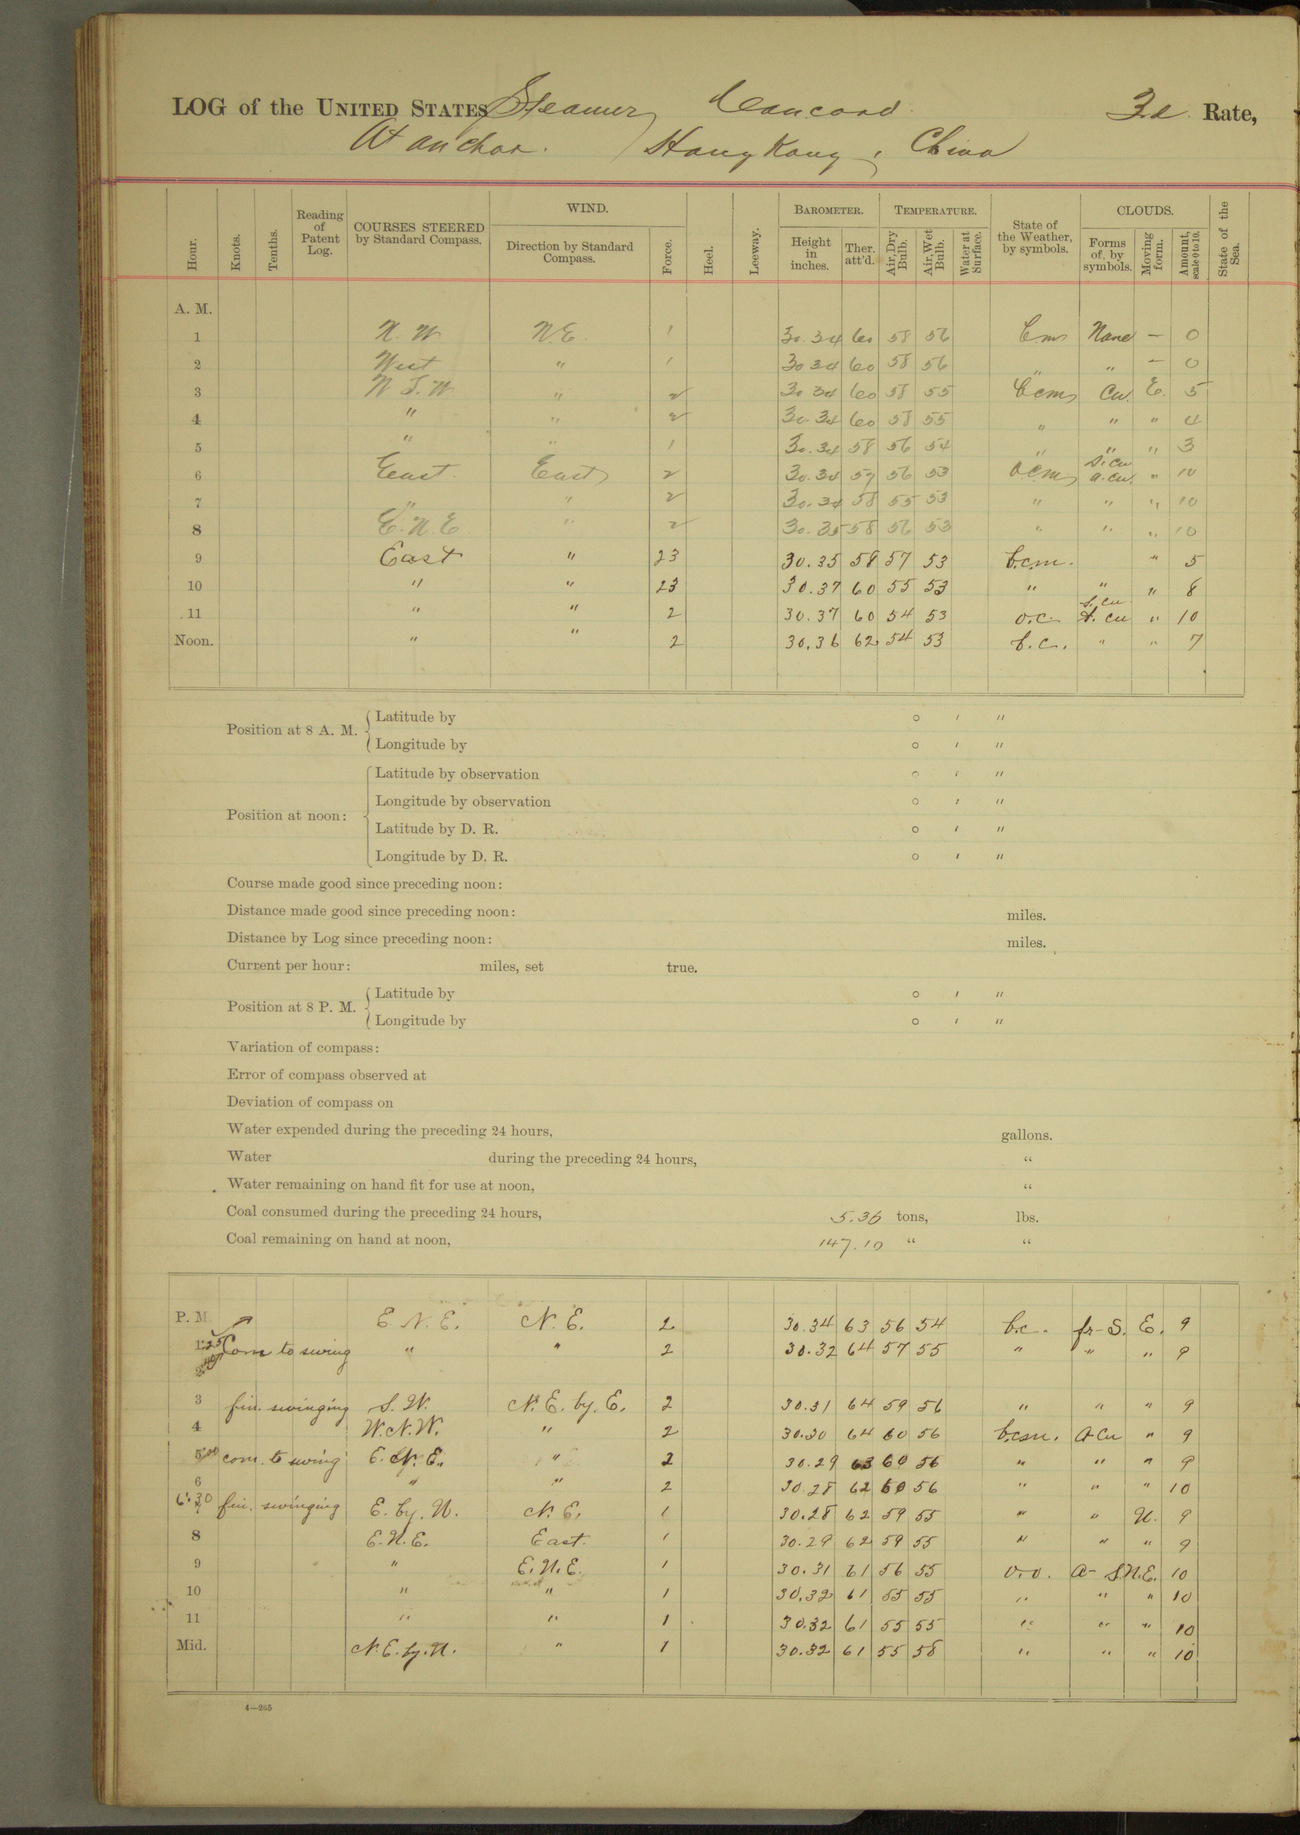 LOG of the UNITED STATES Steamer Concord 3d Rate,
At anchor. Hong Kong, China
Hour. Knots. Tenths. Reading of Patent Log. COURSES STEERED by Standard Compass. WIND. Direction by Standard Compass. Force. Heel. Leeway. BAROMETER. Height in inches. Ther. att'd. TEMPERATURE. Air, Dry Bulb. Air, Wet Bulb. Water at Surface. State of the Weather, by symbols. CLOUDS. Forms of, by symbols. Moving form. Amount, scale 0 to 10. State of the Sea.
A. M.
1 N. W. N.E. 1 30.34 60 58 56 b.m. None — 0
2 West " 1 30.34 60 58 56 " " — 0
3 " 2 30.34 60 58 55 b.c.m. Cu. E. 5
4 " " 2 30.34 60 58 55 " " " 4
5 " " 1 30.34 58 56 54 " " " 3
6 East East 2 30.34 57 56 53 o.c.m. S.Cu. a.cu. " 10
7 " " 2 30.34 58 55 53 " " " 10
8 E.N.E " 2 30.35 58 56 53 " " " 10
9 East " 23 30.35 58 57 53 b.c.m. " 5
10 " " 23 30.37 60 55 53 " " " 8
11 " " 2 30.37 60 54 53 o.c. S.Cu. cu " 10
Noon. " " 2 30.36 62 54 53 b.c. " " 7
Position at 8 A. M. Latitude by ° ′ ″
Longitude by ° ′ ″
Position at noon: Latitude by observation ° ′ ″
Longitude by observation ° ′ ″
Latitude by D. R. ° ′ ″
Longitude by D. R. ° ′ ″
Course made good since preceding noon:
Distance made good since preceding noon: miles.
Distance by Log since preceding noon: miles.
Current per hour: miles, set true.
Position at 8 P. M. Latitude by ° ′ ″
Longitude by ° ′ ″
Variation of compass:
Error of compass observed at
Deviation of compass on
Water expended during the preceding 24 hours, gallons.
Water during the preceding 24 hours, "
Water remaining on hand fit for use at noon, "
Coal consumed during the preceding 24 hours, 5.36 tons, lbs.
Coal remaining on hand at noon, 147.10 " "
P. M. E N. E. N. E. 2 30.34 63 56 54 b.c. fr-S. E. 9
Com to swing " " 2 30.32 64 57 55 " " " 9
3 fin. swinging S. W. N. E. by. E. 2 30.31 64 59 56 " " " 9
4 W.N.W. " 2 30.30 64 60 56 b.c.m. a-cu " 9
5 com. to swing E. N. E. " 2 30.29 63 60 56 " " " 9
6 " " 2 30.28 62 60 56 " " " 10
6:30 fin. swinging E. by. N. N. E. 1 30.28 62 59 55 " " N. 9
8 E.N.E. East. 1 30.29 62 59 55 " " " 9
9 " E.N.E. 1 30.31 61 56 55 o.o. a-S. N.E. 10
10 " " 1 30.32 61 55 55 " " " 10
11 " " 1 30.32 61 55 55 " " " 10
Mid. N.E. by. N. " 1 30.32 61 55 58 " " " 10
4—265